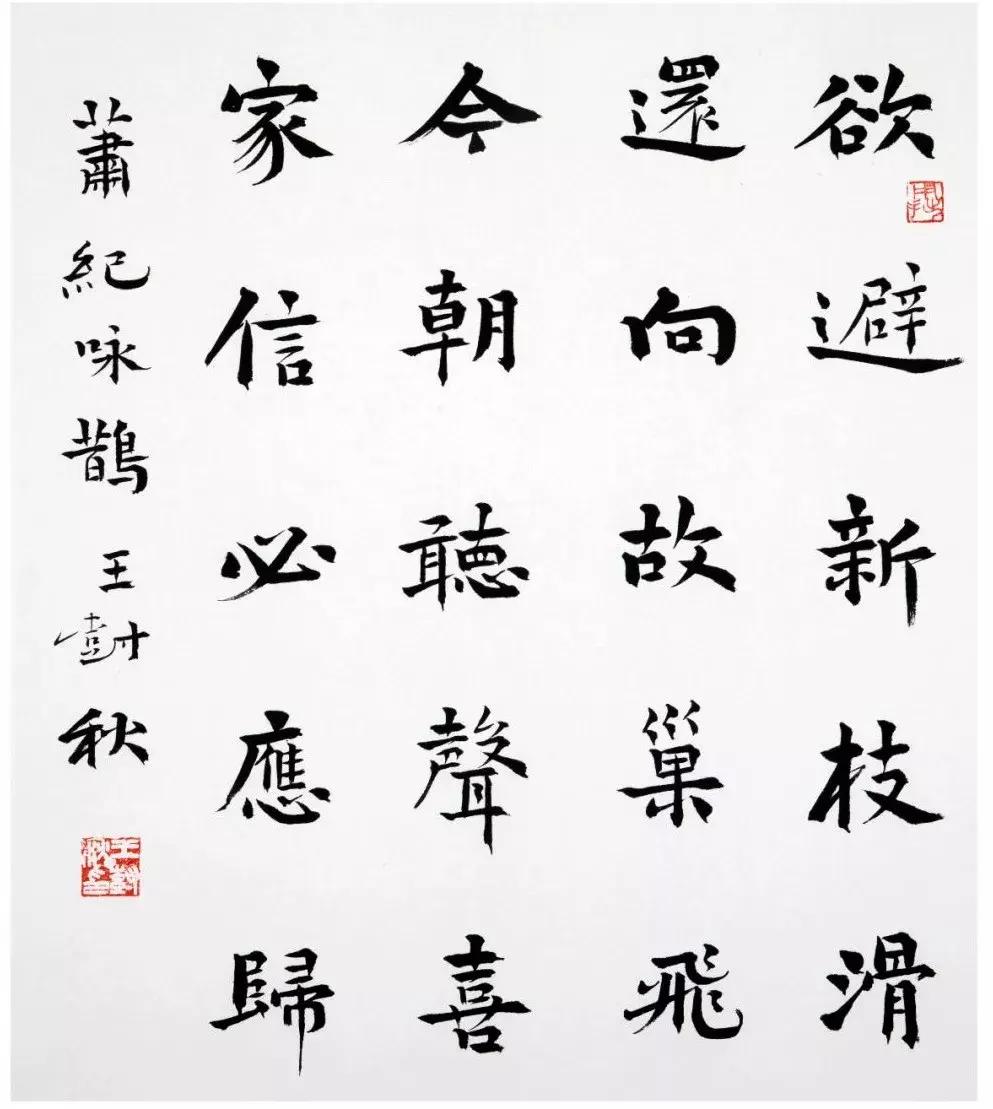 欲避新枝滑
還向故巢飛
今朝聽聲喜
家信必應歸
蕭紀咏鵲 王尌秋